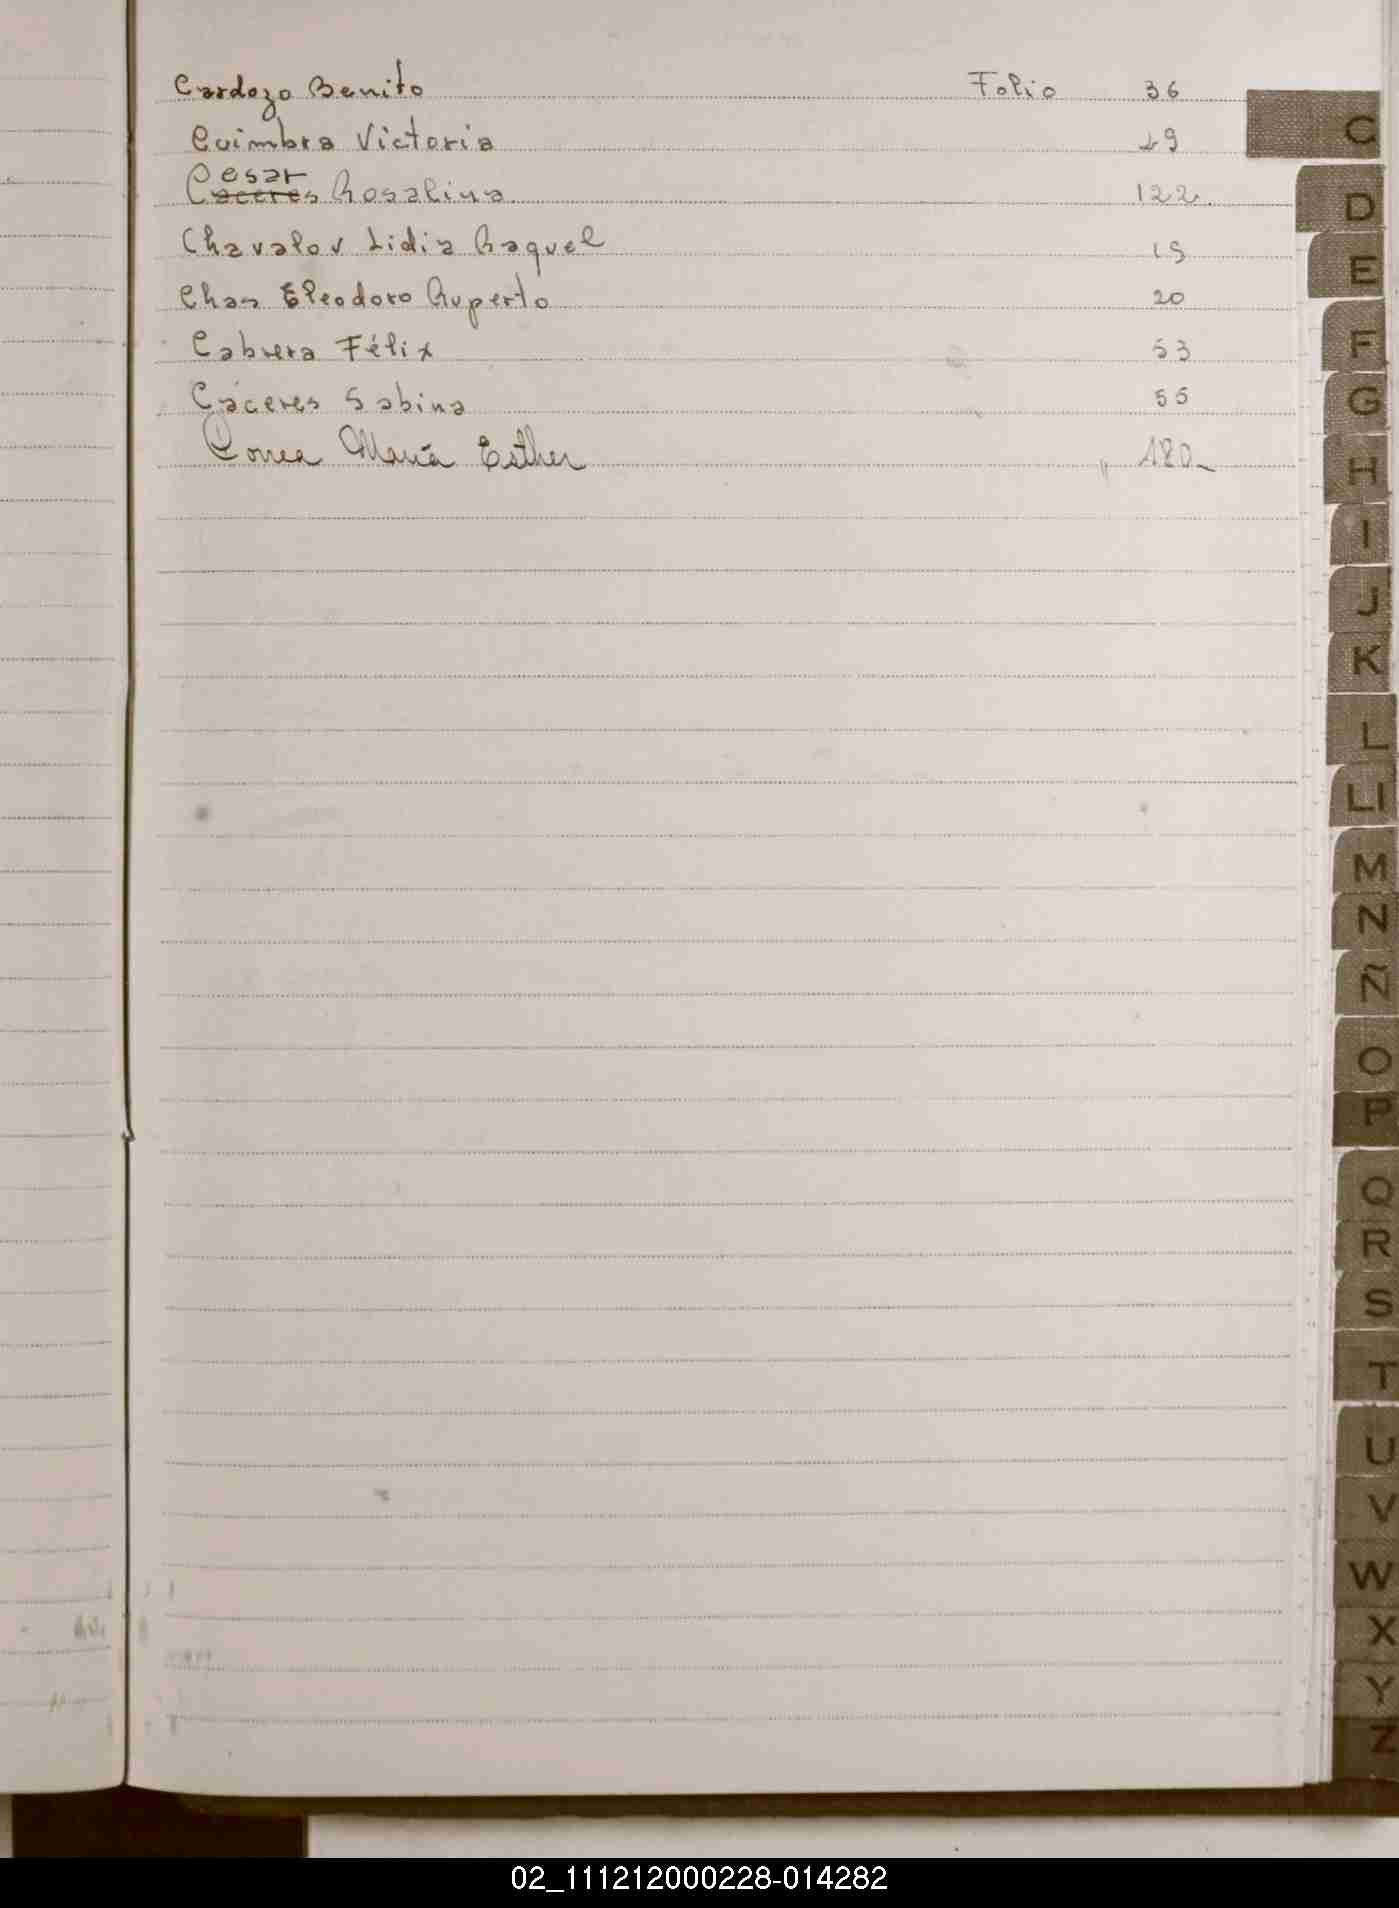 Cardozo Benito Folio 36
Coimbra Victoria 19
Cesar
Caceres Rosalina 122
Chavalov Lidia Raquel 15
Chas Eleodoro Ruperto 20
Cabrera Félix 53
Cáceres Sabina 55
Correa María Esther " 180
C
D
E
F
G
H
I
J
K
L
Ll
M
N
Ñ
O
P
Q
R
S
T
U
V
W
X
Y
Z
02_111212000228-014282